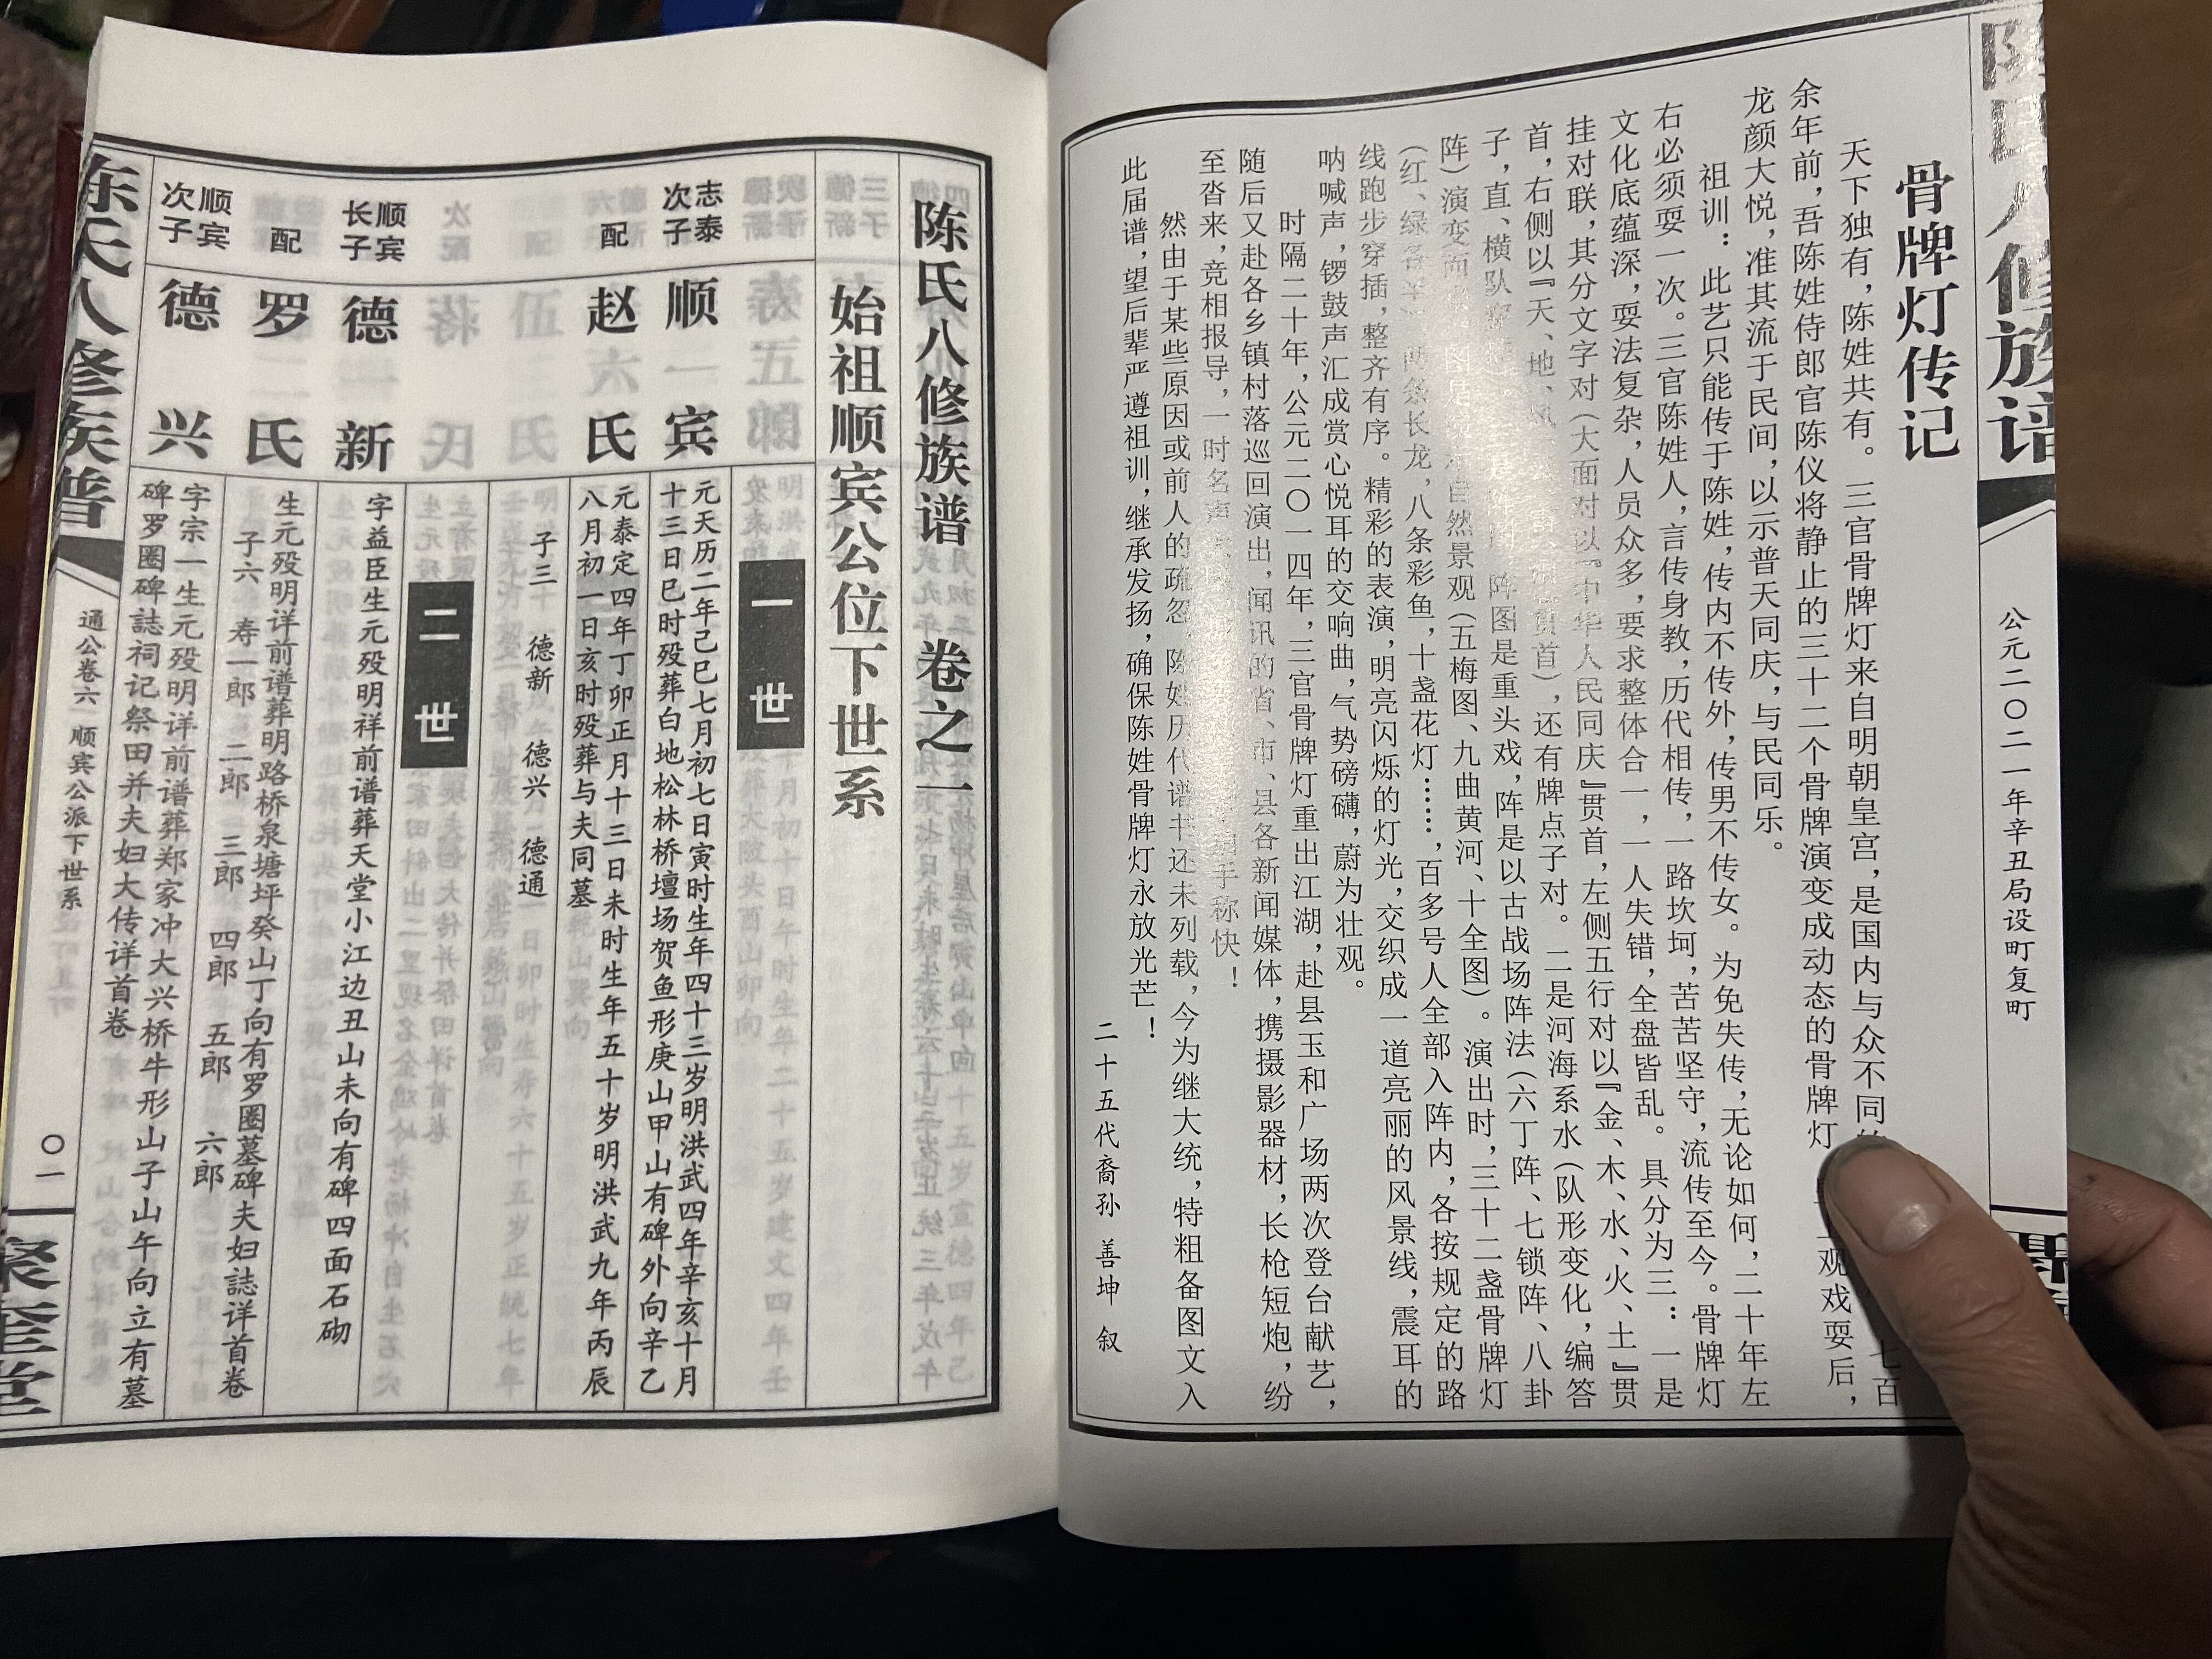 骨牌灯传记
天下独有，陈姓共有。三官骨牌灯来自明朝皇宫，是国内与众不同 七百
余年前，吾陈姓侍郎官陈仪将静止的三十二个骨牌演变成动态的骨牌灯 观戏耍后，
龙颜大悦，准其流于民间，以示普天同庆，与民同乐。
祖训：此艺只能传于陈姓，传内不传外，传男不传女。为免失传，无论如何，二十年左
右必须耍一次。三官陈姓人，言传身教，历代相传，一路坎坷，苦苦坚守，流传至今。骨牌灯
文化底蕴深，耍法复杂，人员众多，要求整体合一，一人失错，全盘皆乱。具分为三：一是
挂对联，其分文字对（大面对以『中华人民同庆』贯首，左侧五行对以『金、木、水、火、土』贯
首，右侧以『天、地、风 贯首），还有牌点子对。二是河海系水（队形变化，编答
子，直、横队 阵图是重头戏，阵是以古战场阵法（六丁阵、七锁阵、八卦
阵）演变而 自然景观（五梅图、九曲黄河、十全图）。演出时，三十二盏骨牌灯
（红、绿各半 两条长龙，八条彩鱼，十盏花灯……，百多号人全部入阵内，各按规定的路
线跑步穿插，整齐有序。精彩的表演，明亮闪烁的灯光，交织成一道亮丽的风景线，震耳的
呐喊声，锣鼓声汇成赏心悦耳的交响曲，气势磅礴，蔚为壮观。
时隔二十年，公元二〇一四年，三官骨牌灯重出江湖，赴县玉和广场两次登台献艺，
随后又赴各乡镇村落巡回演出，闻讯的省、市、县各新闻媒体，携摄影器材，长枪短炮，纷
至沓来，竞相报导，一时名声 手称快！
然由于某些原因或前人的疏忽，陈姓历代谱书还未列载，今为继大统，特粗备图文入
此届谱，望后辈严遵祖训，继承发扬，确保陈姓骨牌灯永放光芒！
二十五代裔孙 善坤 叙
公元二〇二一年辛丑局设町复町
陈氏八修族谱 卷之一
始祖顺宾公位下世系
一世
志泰次子 顺宾
元天历二年己巳七月初七日寅时生年四十三岁明洪武四年辛亥十月
十三日巳时殁葬白地松林桥壇场贺鱼形庚山甲山有碑外向辛乙
配 赵氏
元泰定四年丁卯正月十三日未时生年五十岁明洪武九年丙辰
八月初一日亥时殁葬与夫同墓
子三 德新 德兴 德通
二世
顺宾长子 德新
字益臣生元殁明祥前谱葬天堂小江边丑山未向有碑四面石砌
配 罗氏
生元殁明详前谱葬明路桥泉塘坪癸山丁向有罗圈墓碑夫妇誌详首卷
子六 寿一郎 二郎 三郎 四郎 五郎 六郎
顺宾次子 德兴
字宗一生元殁明详前谱葬郑家冲大兴桥牛形山子山午向立有墓
碑罗圈碑誌祠记祭田并夫妇大传详首卷
陈氏八修族谱
通公卷六 顺宾公派下世系
〇一
聚奎堂